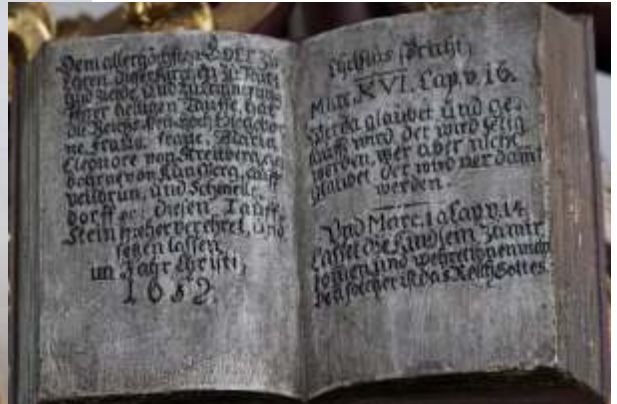 Dem allerhöchsten GOTT zu
Ehren, dieser Kirchen zu
Zierde, und zu Erinnerung
Ihrer heiligen Tauffe, hat
die Reichs Frey Hoch Edelgebor
ne Fraŭ, Fraŭ Maria
Eleonore von
borne von Künsberg, auff
und Schmeils
dorff ec: diesen Tauff
Stein hieher verehret, und
setzen lassen,
im Jahr Christi,
1652.
Christus spricht,
Marc. XVI. Cap. v. 16.
Wer da glaubet und ge-
taufft wird der wird selig
werden, wer aber nicht
glaubet, der wird verdamt
werden.
Und Marc. 10 Cap. v. 14
Lasset die Kindlein zu mir
komen und wehret ihnen nicht
den solcher ist das Reich Gottes